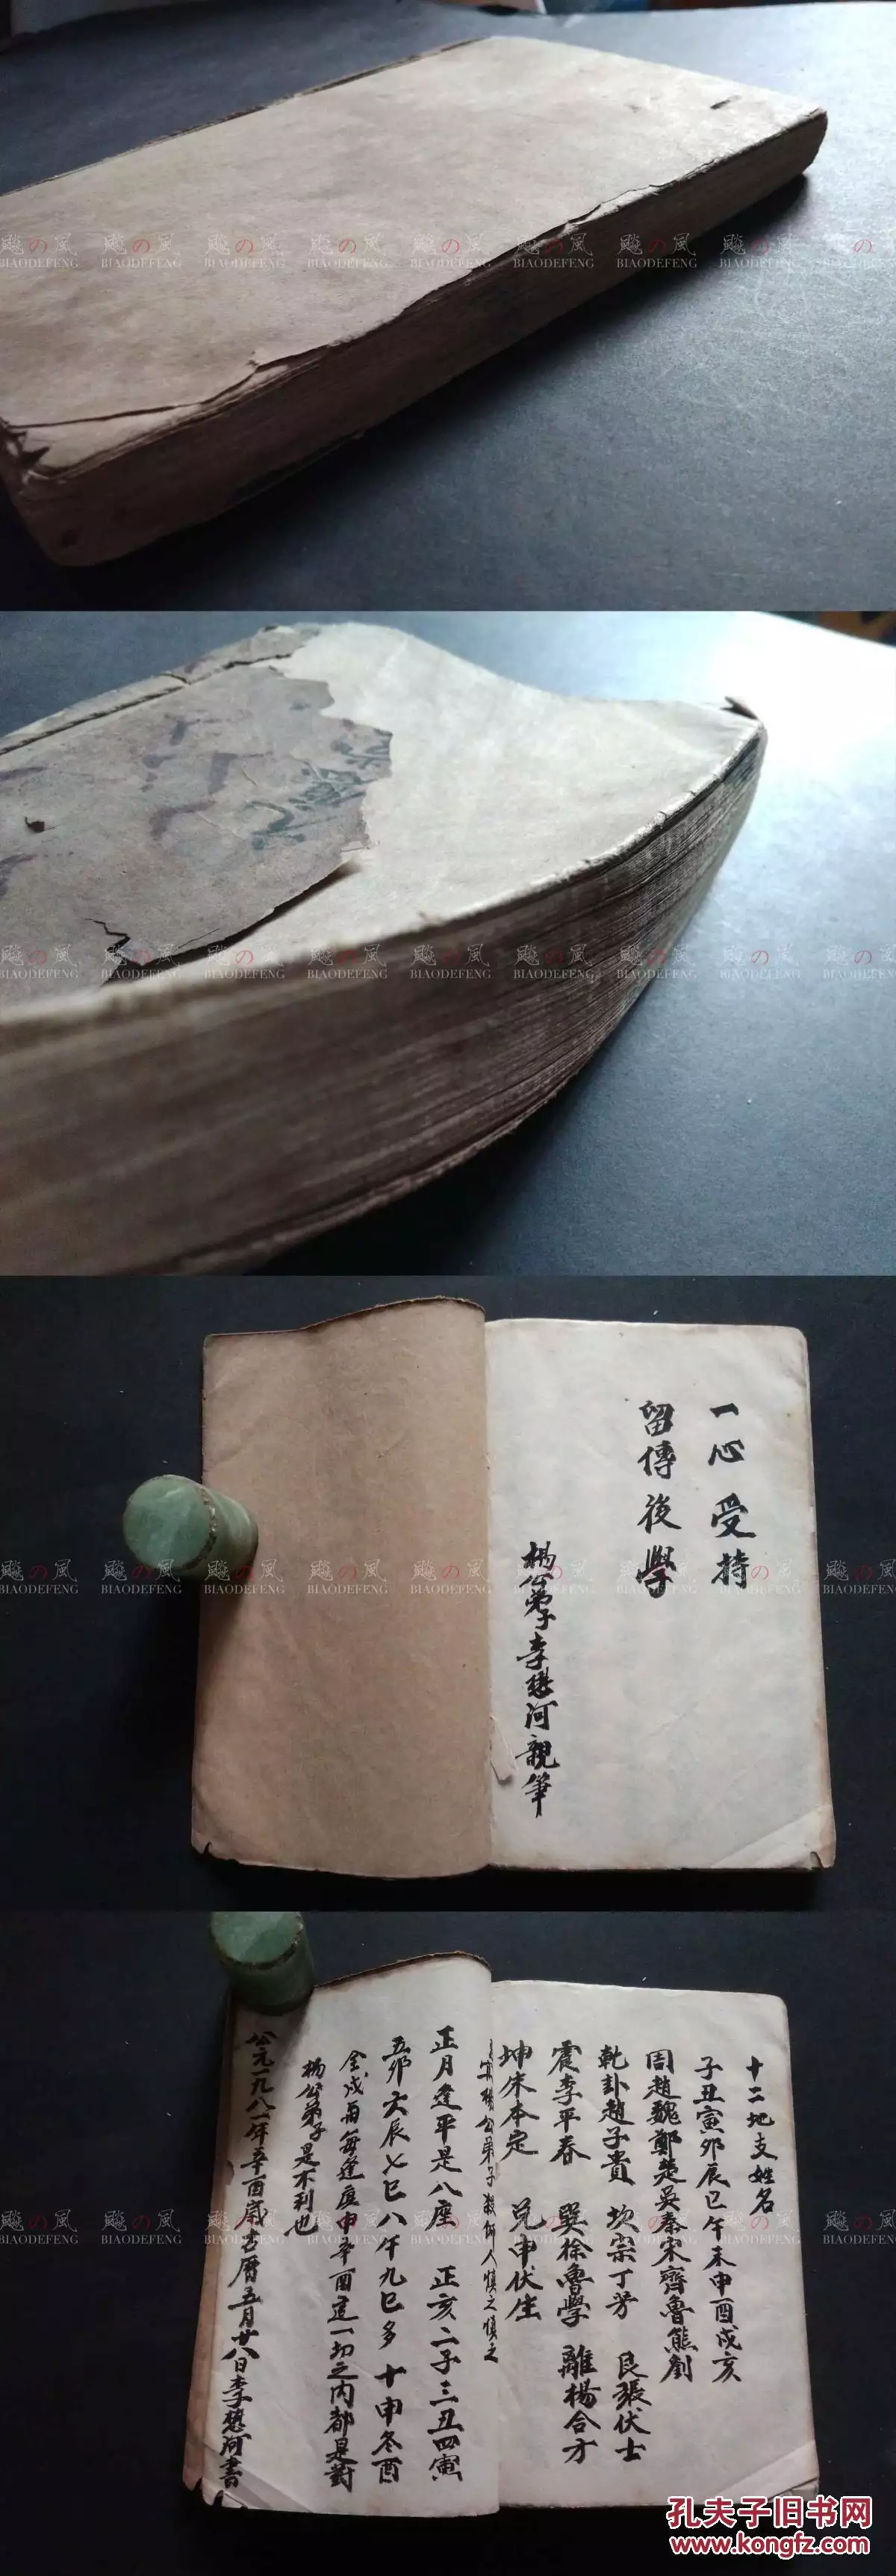 一心受持
留傳後學
楊公弟子李懋河親筆
十二地支姓名
子丑寅卯辰巳午未申酉戌亥
周趙魏鄭楚吳秦宋齊魯熊劉
乾卦趙子貴 坎宗丁芳 艮張伏士
震李平春 巽徐魯學 離楊合才
坤朱本定 兌申伏生
公弟子殺師人慎之慎之
正月逢平是八座 正亥二子三丑四寅
五卯六辰七巳八午九巳多 十申冬酉
全戌 每逢庚申辛酉這一切之內都是對
楊公弟子是不利也
公元一九八一年辛酉歲古曆五月廿八日李懋河書
飈の風
BIAODEFENG
孔夫子旧书网
www.kongfz.com